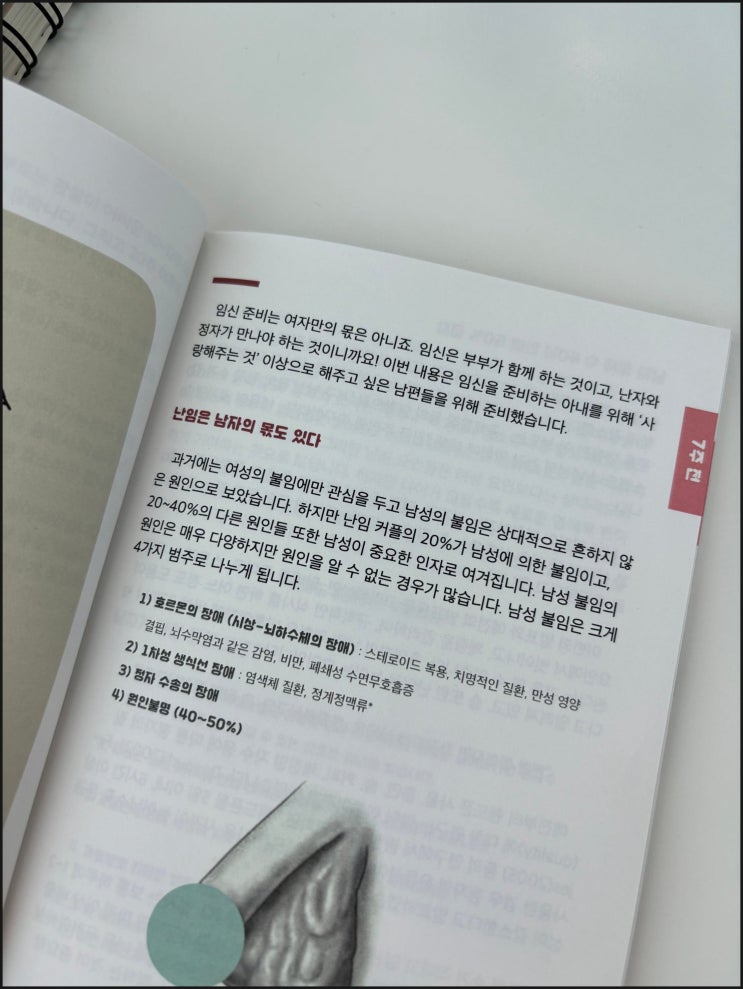 임신 준비는 여자만의 몫은 아니죠. 임신은 부부가 함께 하는 것이고, 난자와
정자가 만나야 하는 것이니까요! 이번 내용은 임신을 준비하는 아내를 위해 ‘사
랑해주는 것’ 이상으로 해주고 싶은 남편들을 위해 준비했습니다.
난임은 남자의 몫도 있다
7주 전
과거에는 여성의 불임에만 관심을 두고 남성의 불임은 상대적으로 흔하지 않
은 원인으로 보았습니다. 하지만 난임 커플의 20%가 남성에 의한 불임이고,
20~40%의 다른 원인들 또한 남성이 중요한 인자로 여겨집니다. 남성 불임의
원인은 매우 다양하지만 원인을 알 수 없는 경우가 많습니다. 남성 불임은 크게
4가지 범주로 나누게 됩니다.
1) 호르몬의 장애 (시상-뇌하수체의 장애) : 스테로이드 복용, 치명적인 질환, 만성 영양
결핍, 뇌수막염과 같은 감염, 비만, 폐쇄성 수면무호흡증
2) 1차성 생식선 장애 : 염색체 질환, 정계정맥류*
3) 정자 수송의 장애
4) 원인불명 (40~50%)